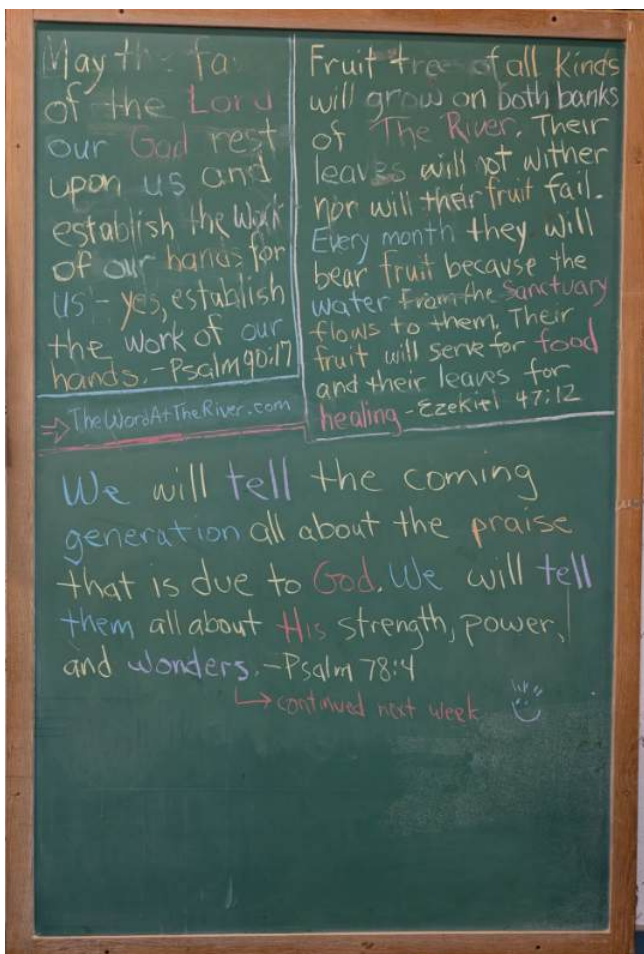 May the fa
of the Lord
our God rest
upon us and
establish the work
of our hands for
us - yes, establish
the work of our
hands. - Psalm 90:17
→ TheWordAtTheRiver.com
Fruit tre of all Kinds
will grow on both banks
of The River. Their
leaves will not wither
nor will their fruit fail.
Every month they will
bear fruit because the
water from the Sanctuary
flows to them. Their
fruit will serve for food
and their leaves for
healing - Ezekiel 47:12
We will tell the coming
generation all about the praise
that is due to God. We will tell
them all about His strength, power,
and wonders. - Psalm 78:4
→ continued next week